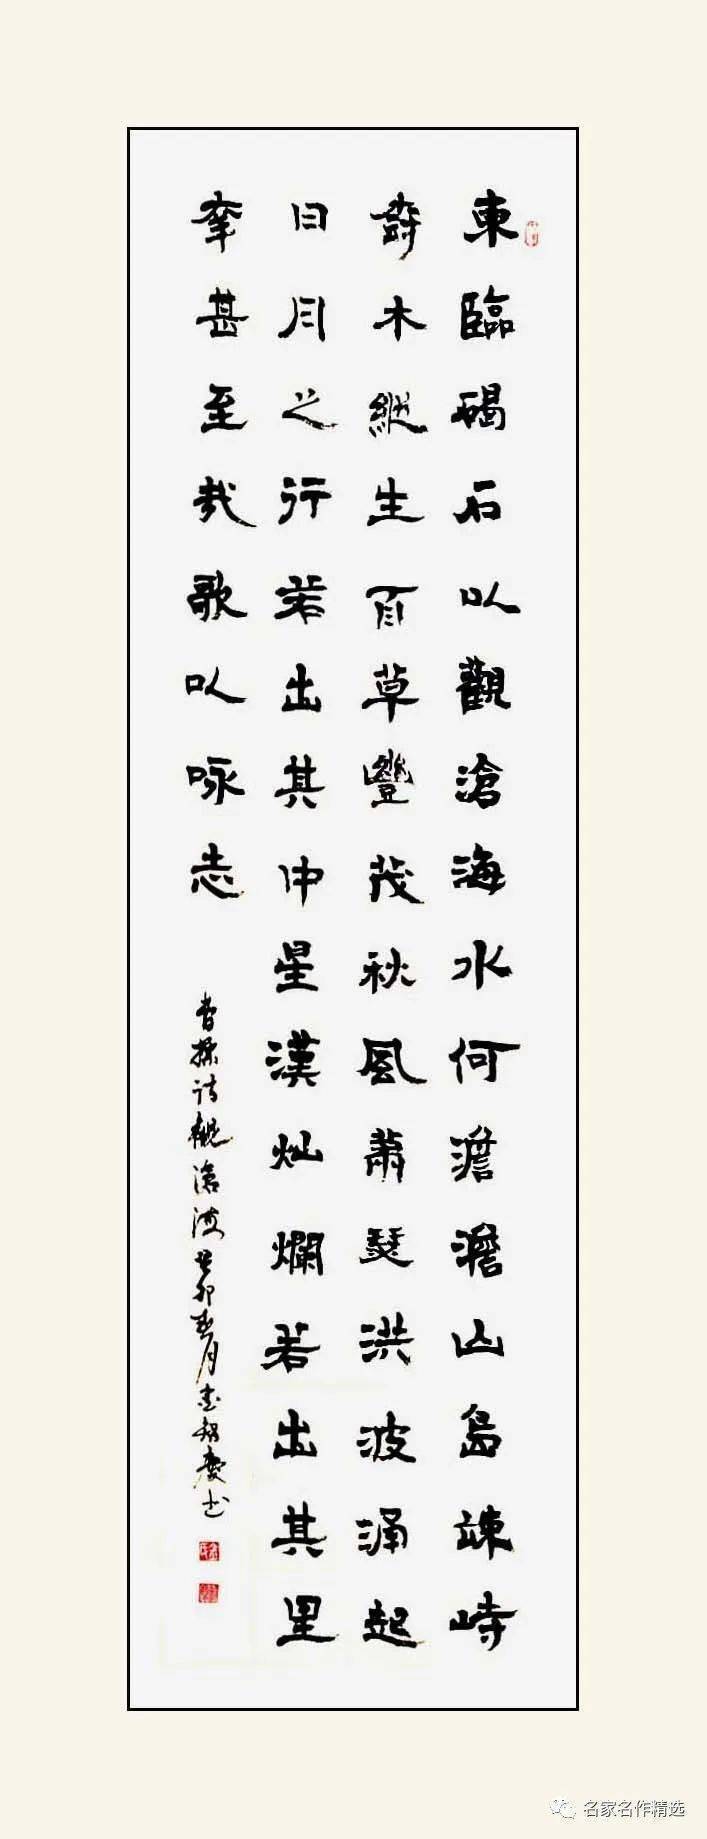 東臨碣石以觀滄海水何澹澹山島竦峙
樹木縱生百草豐茂秋風蕭瑟洪波涌起
日月之行若出其中星漢灿爛若出其里
幸甚至哉歌以咏志
曹操诗觀滄海癸卯春月慶书
名家名作精选